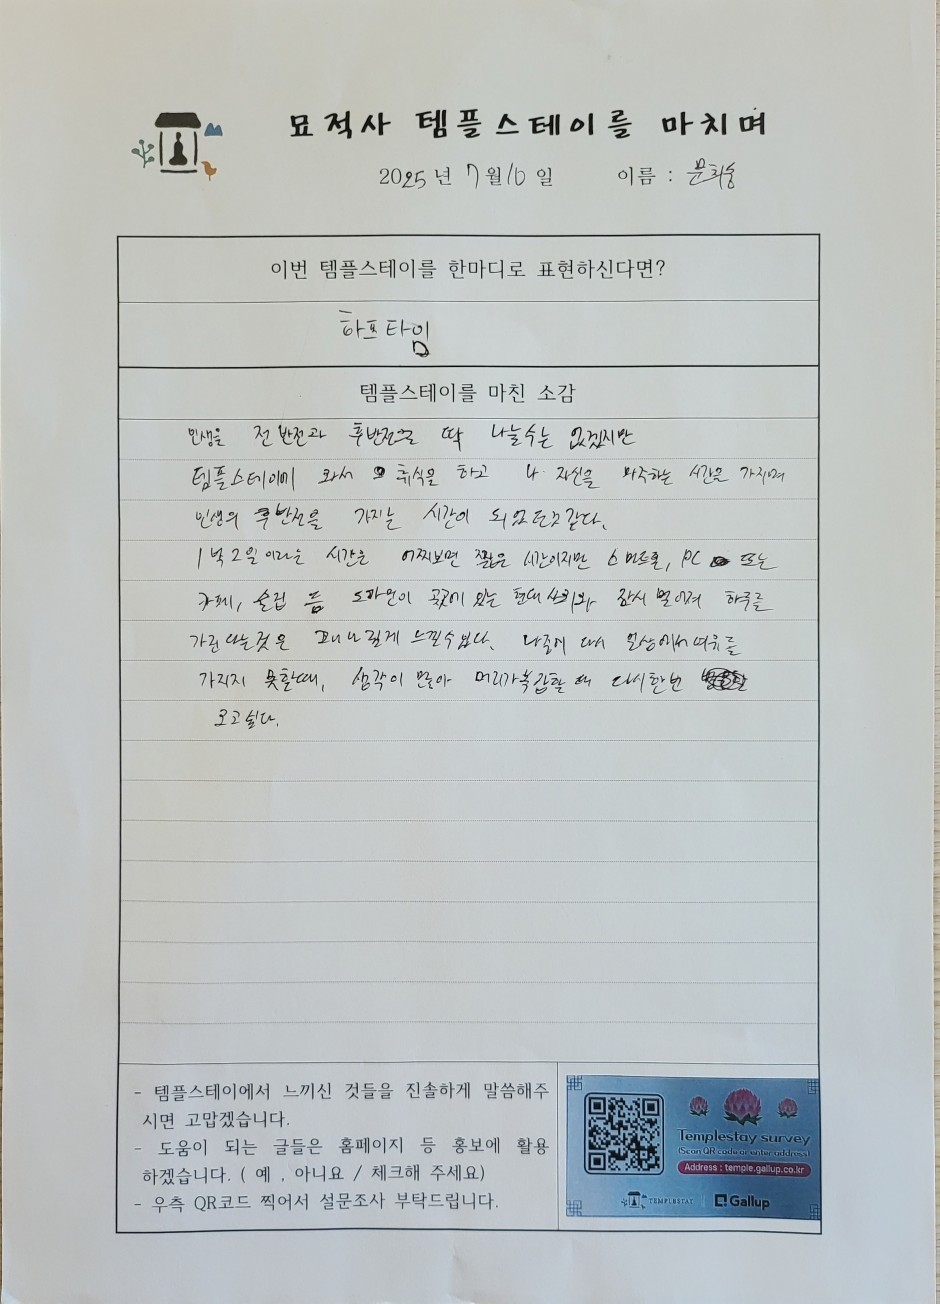 묘적사 템플스테이를 마치며
2025년 7월 16일 이름 : 문희승
이번 템플스테이를 한마디로 표현하신다면?
하프타임
템플스테이를 마친 소감
인생을 전반전과 후반전으로 딱 나눌수는 없겠지만
템플스테이에 와서 휴식을 하고 나 자신을 마주하는 시간을 가지며
인생의 후반전을 가지는 시간이 되었던것같다.
1박2일이라는 시간은 어찌보면 짧은 시간이지만 스마트폰, PC 또는
카페, 술집 등 도파민이 곳곳에 있는 현대 사회와 잠시 멀어져 하루를
가진다는것은 꽤나 길게 느낄수있다. 나중에 다시 일상에서 여유를
가지지 못할때, 생각이 많아 머리가복잡할 때 다시한번
오고싶다.
- 템플스테이에서 느끼신 것들을 진솔하게 말씀해주
시면 고맙겠습니다.
- 도움이 되는 글들은 홈페이지 등 홍보에 활용
하겠습니다. ( 예 , 아니요 / 체크해 주세요)
- 우측 QR코드 찍어서 설문조사 부탁드립니다.
Templestay survey
(Scan QR code or enter address)
Address : temple.gallup.co.kr
TEMPLESTAY Gallup